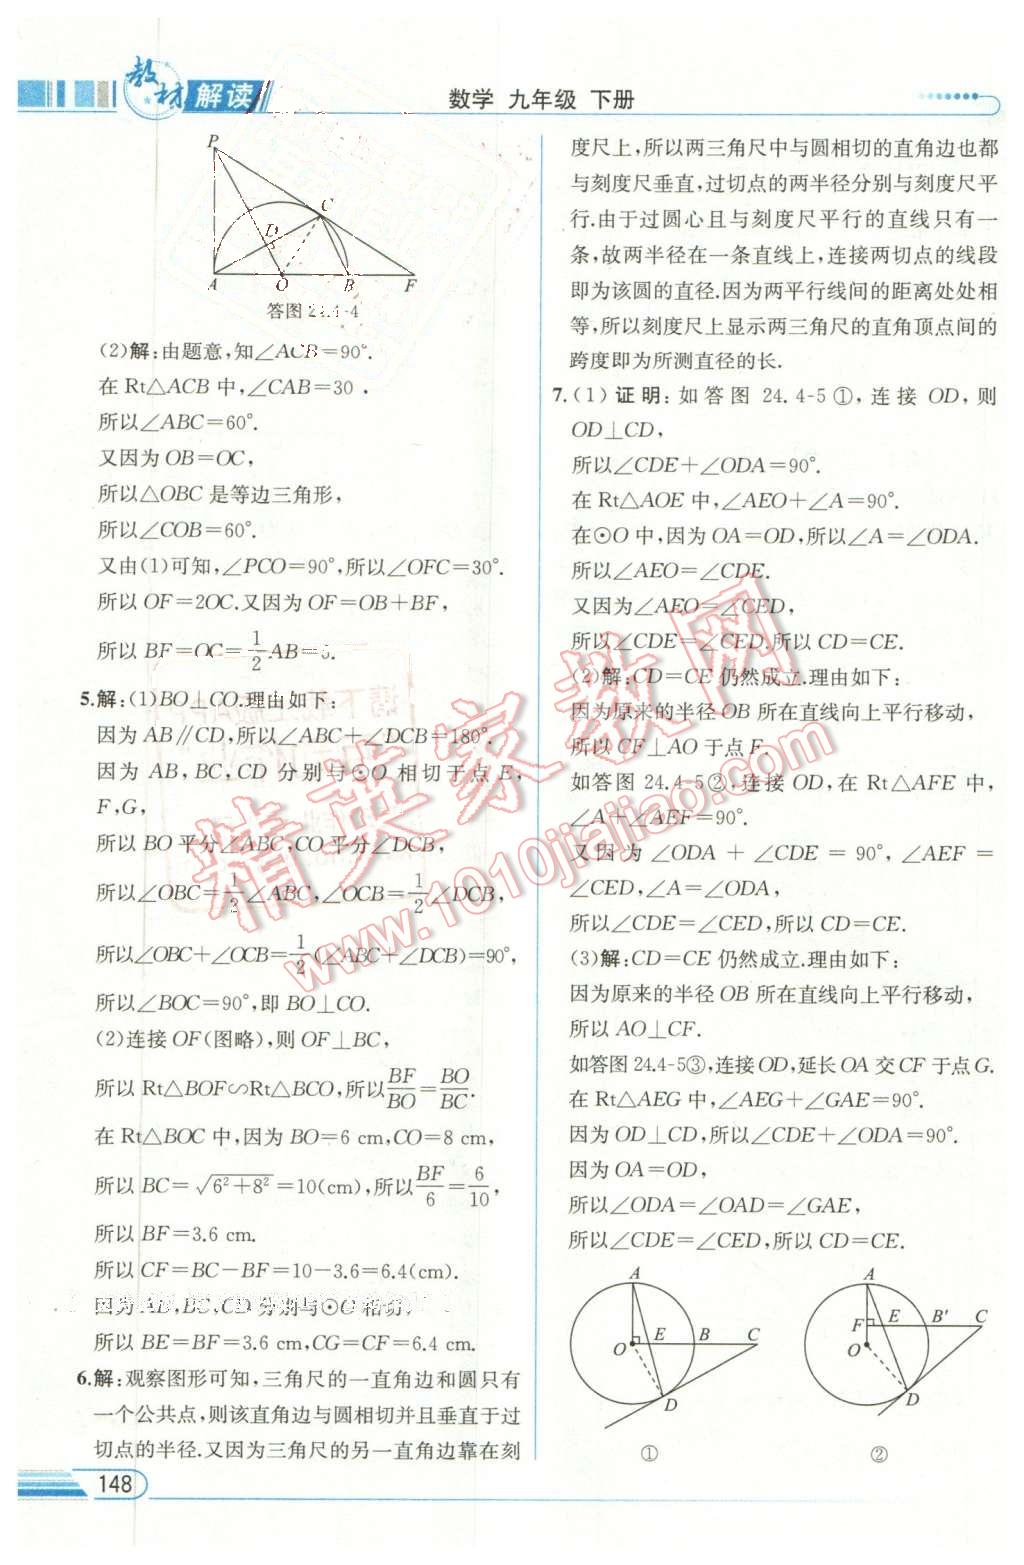 教材解读
数学 九年级 下册
P
C
D
A O B F
答图 24.4-4
(2)解:由题意,知∠ACB=90°.
在 Rt△ACB 中,∠CAB=30 .
所以∠ABC=60°.
又因为 OB=OC,
所以△OBC 是等边三角形,
所以∠COB=60°.
又由(1)可知,∠PCO=90°,所以∠OFC=30°.
所以 OF=2OC.又因为 OF=OB+BF,
所以 BF=OC=1/2 AB=5.
5.解:(1)BO⊥CO.理由如下:
因为 AB∥CD,所以∠ABC+∠DCB=180°.
因为 AB,BC,CD 分别与⊙O 相切于点 E,
F,G,
所以 BO 平分∠ABC,CO 平分∠DCB,
所以∠OBC=1/2∠ABC,∠OCB=1/2∠DCB,
所以∠OBC+∠OCB=1/2(∠ABC+∠DCB)=90°,
所以∠BOC=90°,即 BO⊥CO.
(2)连接 OF(图略),则 OF⊥BC,
所以 Rt△BOF∽Rt△BCO,所以BF/BO=BO/BC.
在 Rt△BOC 中,因为 BO=6 cm,CO=8 cm,
所以 BC=√(6²+8²)=10(cm),所以BF/6=6/10,
所以 BF=3.6 cm.
所以 CF=BC−BF=10−3.6=6.4(cm).
因为 AB,BC,CD 分别与⊙O 相切,
所以 BE=BF=3.6 cm,CG=CF=6.4 cm.
6.解:观察图形可知,三角尺的一直角边和圆只有
一个公共点,则该直角边与圆相切并且垂直于过
切点的半径.又因为三角尺的另一直角边靠在刻
度尺上,所以两三角尺中与圆相切的直角边也都
与刻度尺垂直,过切点的两半径分别与刻度尺平
行.由于过圆心且与刻度尺平行的直线只有一
条,故两半径在一条直线上,连接两切点的线段
即为该圆的直径.因为两平行线间的距离处处相
等,所以刻度尺上显示两三角尺的直角顶点间的
跨度即为所测直径的长.
7.(1)证明:如答图 24.4-5①,连接 OD,则
OD⊥CD,
所以∠CDE+∠ODA=90°.
在 Rt△AOE 中,∠AEO+∠A=90°.
在⊙O 中,因为 OA=OD,所以∠A=∠ODA.
所以∠AEO=∠CDE.
又因为∠AEO=∠CED,
所以∠CDE=∠CED,所以 CD=CE.
(2)解:CD=CE 仍然成立.理由如下:
因为原来的半径 OB 所在直线向上平行移动,
所以 CF⊥AO 于点 F.
如答图 24.4-5②,连接 OD,在 Rt△AFE 中,
∠A+∠AEF=90°.
又因为∠ODA+∠CDE=90°,∠AEF=
∠CED,∠A=∠ODA,
所以∠CDE=∠CED,所以 CD=CE.
(3)解:CD=CE 仍然成立.理由如下:
因为原来的半径 OB 所在直线向上平行移动,
所以 AO⊥CF.
如答图 24.4-5③,连接 OD,延长 OA 交 CF 于点 G.
在 Rt△AEG 中,∠AEG+∠GAE=90°.
因为 OD⊥CD,所以∠CDE+∠ODA=90°.
因为 OA=OD,
所以∠ODA=∠OAD=∠GAE,
所以∠CDE=∠CED,所以 CD=CE.
A
E B C
O
D
①
A
F E B′ C
O
D
②
148
精英家教网
www.1010jiajiao.com